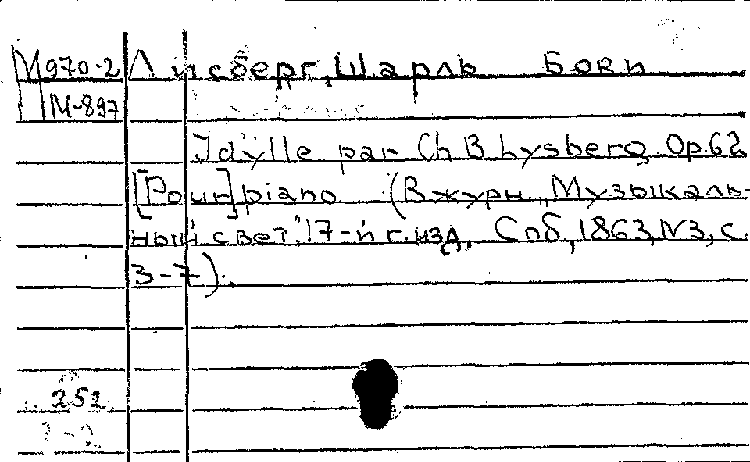 М970-2 Лисберг, Шарль Бови
М-897
Idylle par Ch B Lysberg. Op. 62
[Pour] piano (В журн. „Музыкаль-
ный свет", 17-й г. изд. Спб, 1863, N3, с.
3-7).
252